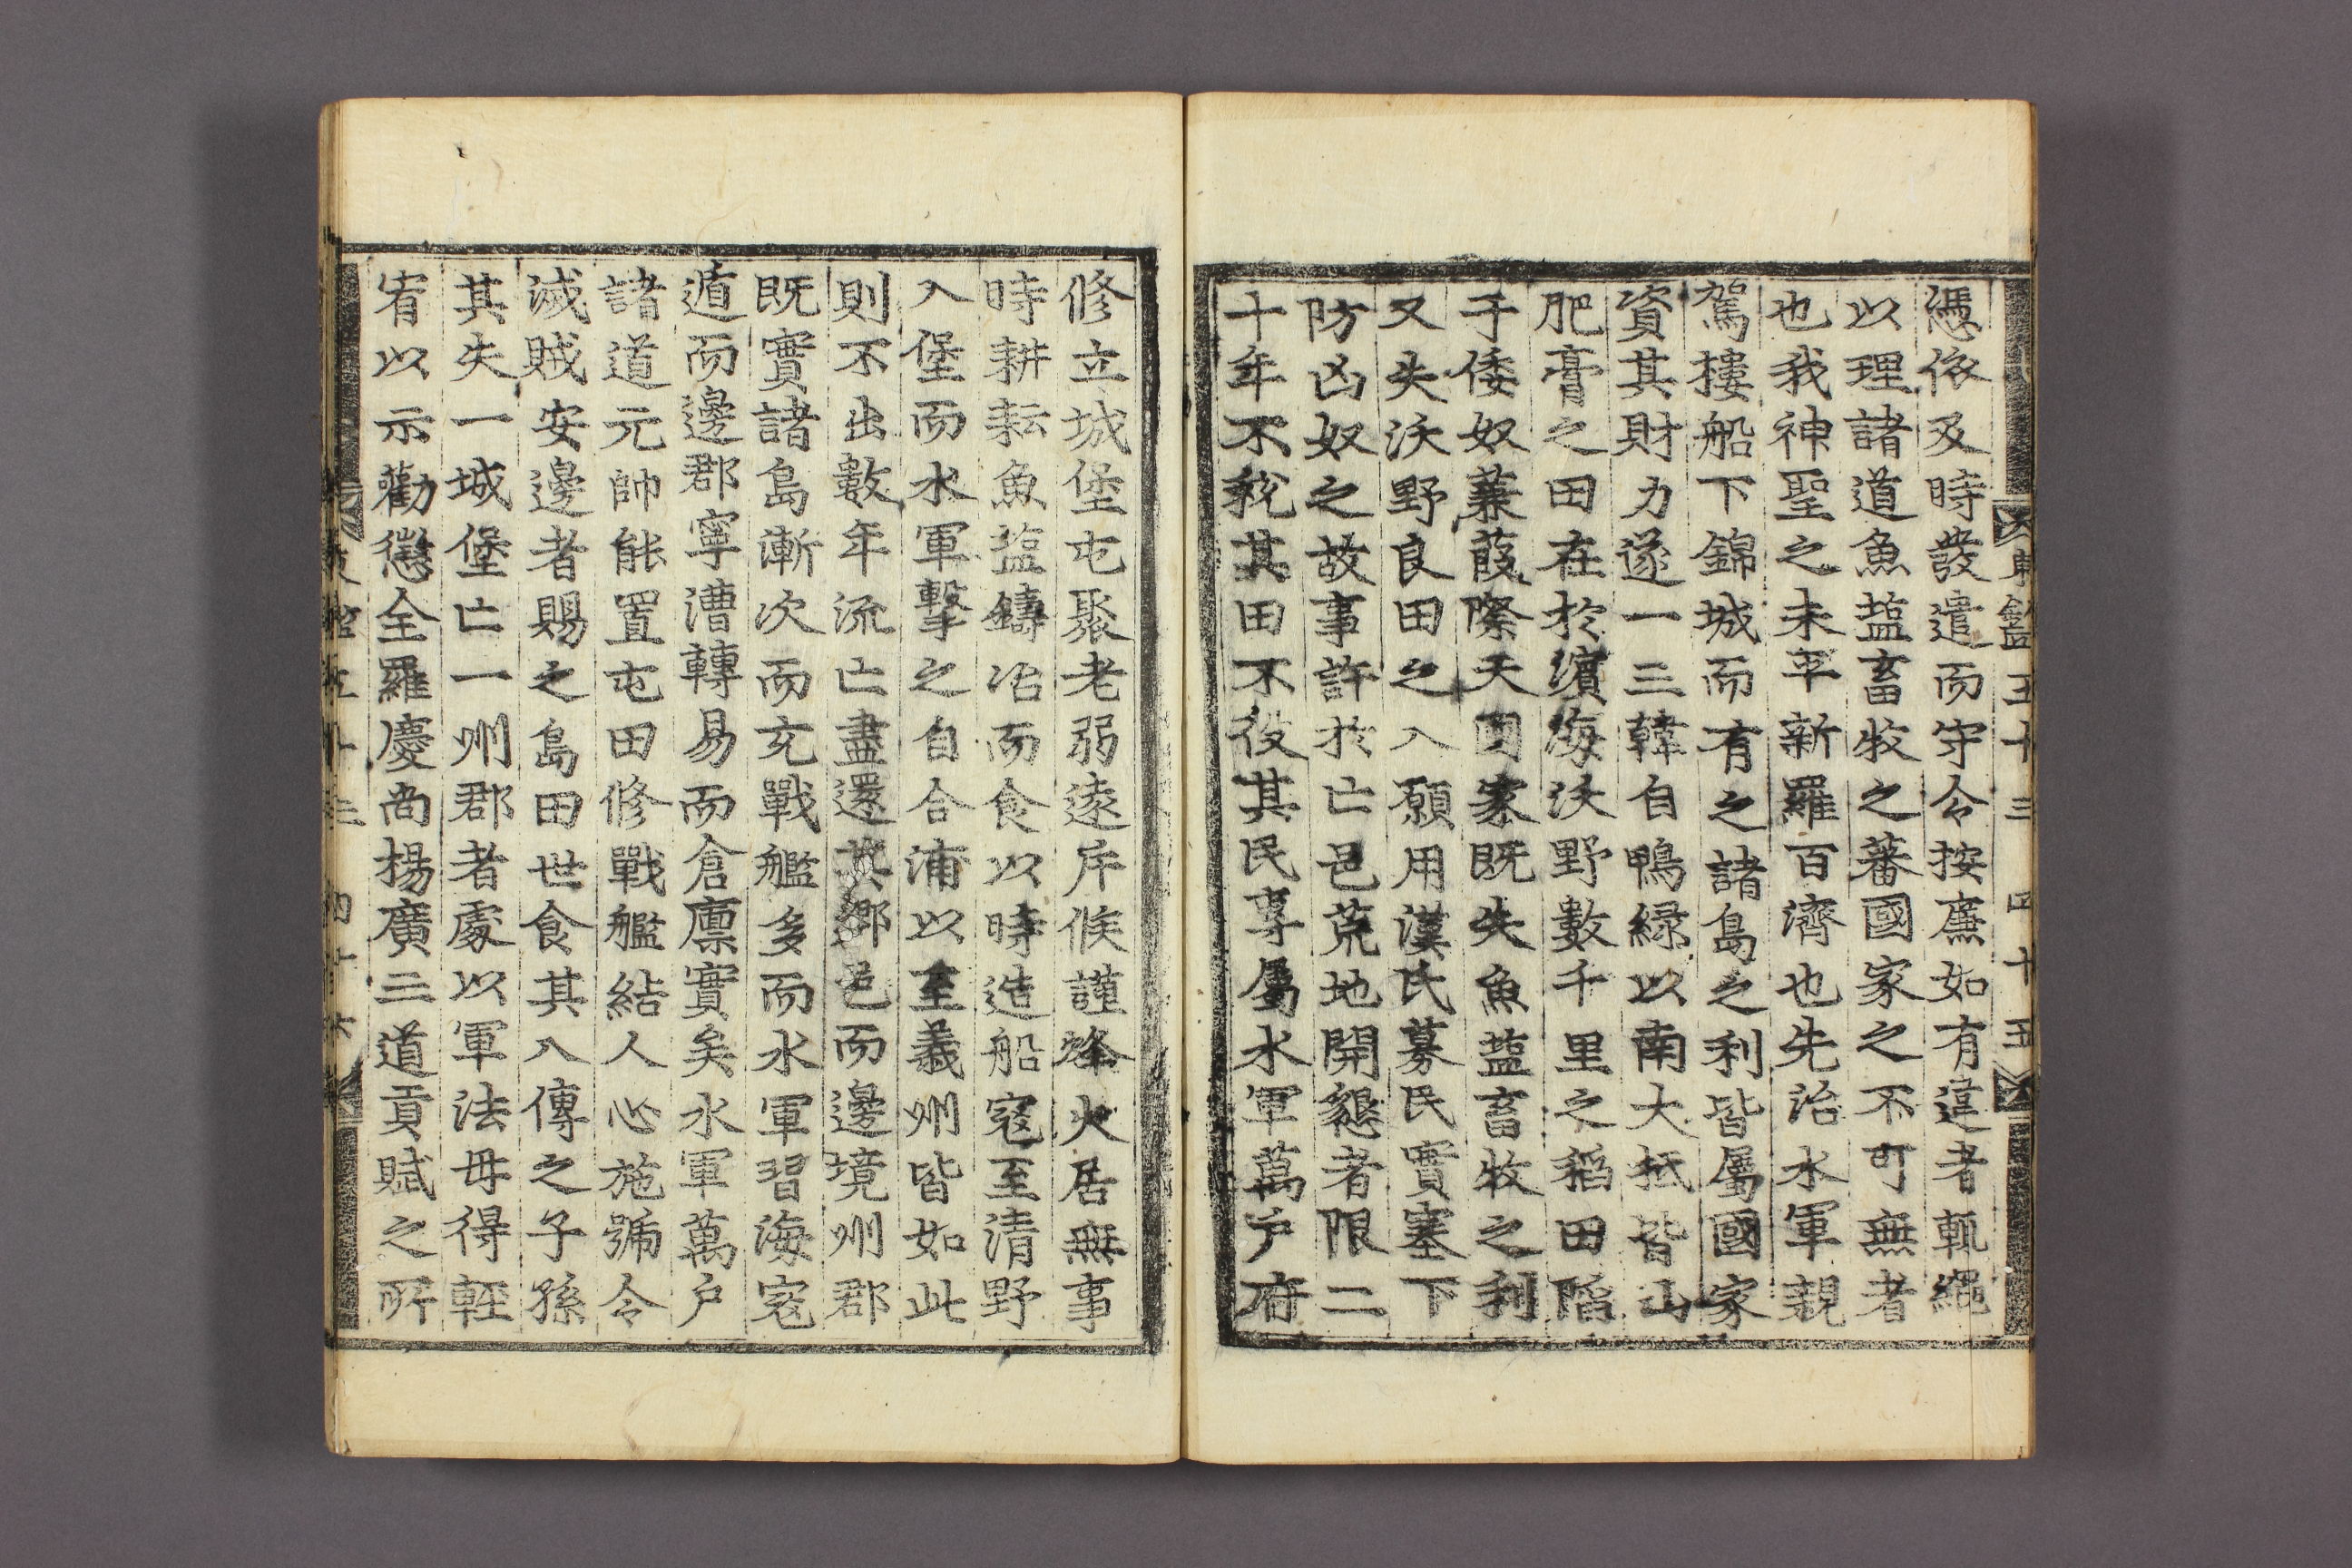 東鑑五十三 四十五
憑依及時發遣而守令按廉如有違者輒繩
以理諸道魚塩畜牧之蕃國家之不可無者
也我神聖之未平新羅百濟也先治水軍親
駕樓船下錦城而有之諸島之利皆属國家
資其財力遂一三韓自鴨緑以南大抵皆山
肥膏之田在於濱海沃野數千里之稻田陷
于倭奴蒹葭際天國家既失魚塩畜牧之利
又失沃野良田之入願用漢氏募民實塞下
防凶奴之故事許於亡邑荒地開懇者限二
十年不稅其田不役其民專属水軍萬户府
修立城堡屯聚老弱遠斥候謹烽火居無事
時耕耘魚塩鑄冶而食以時造船冦至清野
入堡而水軍擊之自合浦以至義州皆如此
則不出數年流亡盡還其鄉邑而邊境州郡
既實諸島漸次而充戰艦多而水軍習海冦
遁而邊郡寧漕轉易而倉廩實矣水軍萬户
諸道元帥能置屯田修戰艦結人心施號令
滅賊安邊者賜之島田世食其入傳之子孫
其失一城堡亡一州郡者處以軍法毋得輕
宥以示勸懲全羅慶尚楊廣三道貢賦之所